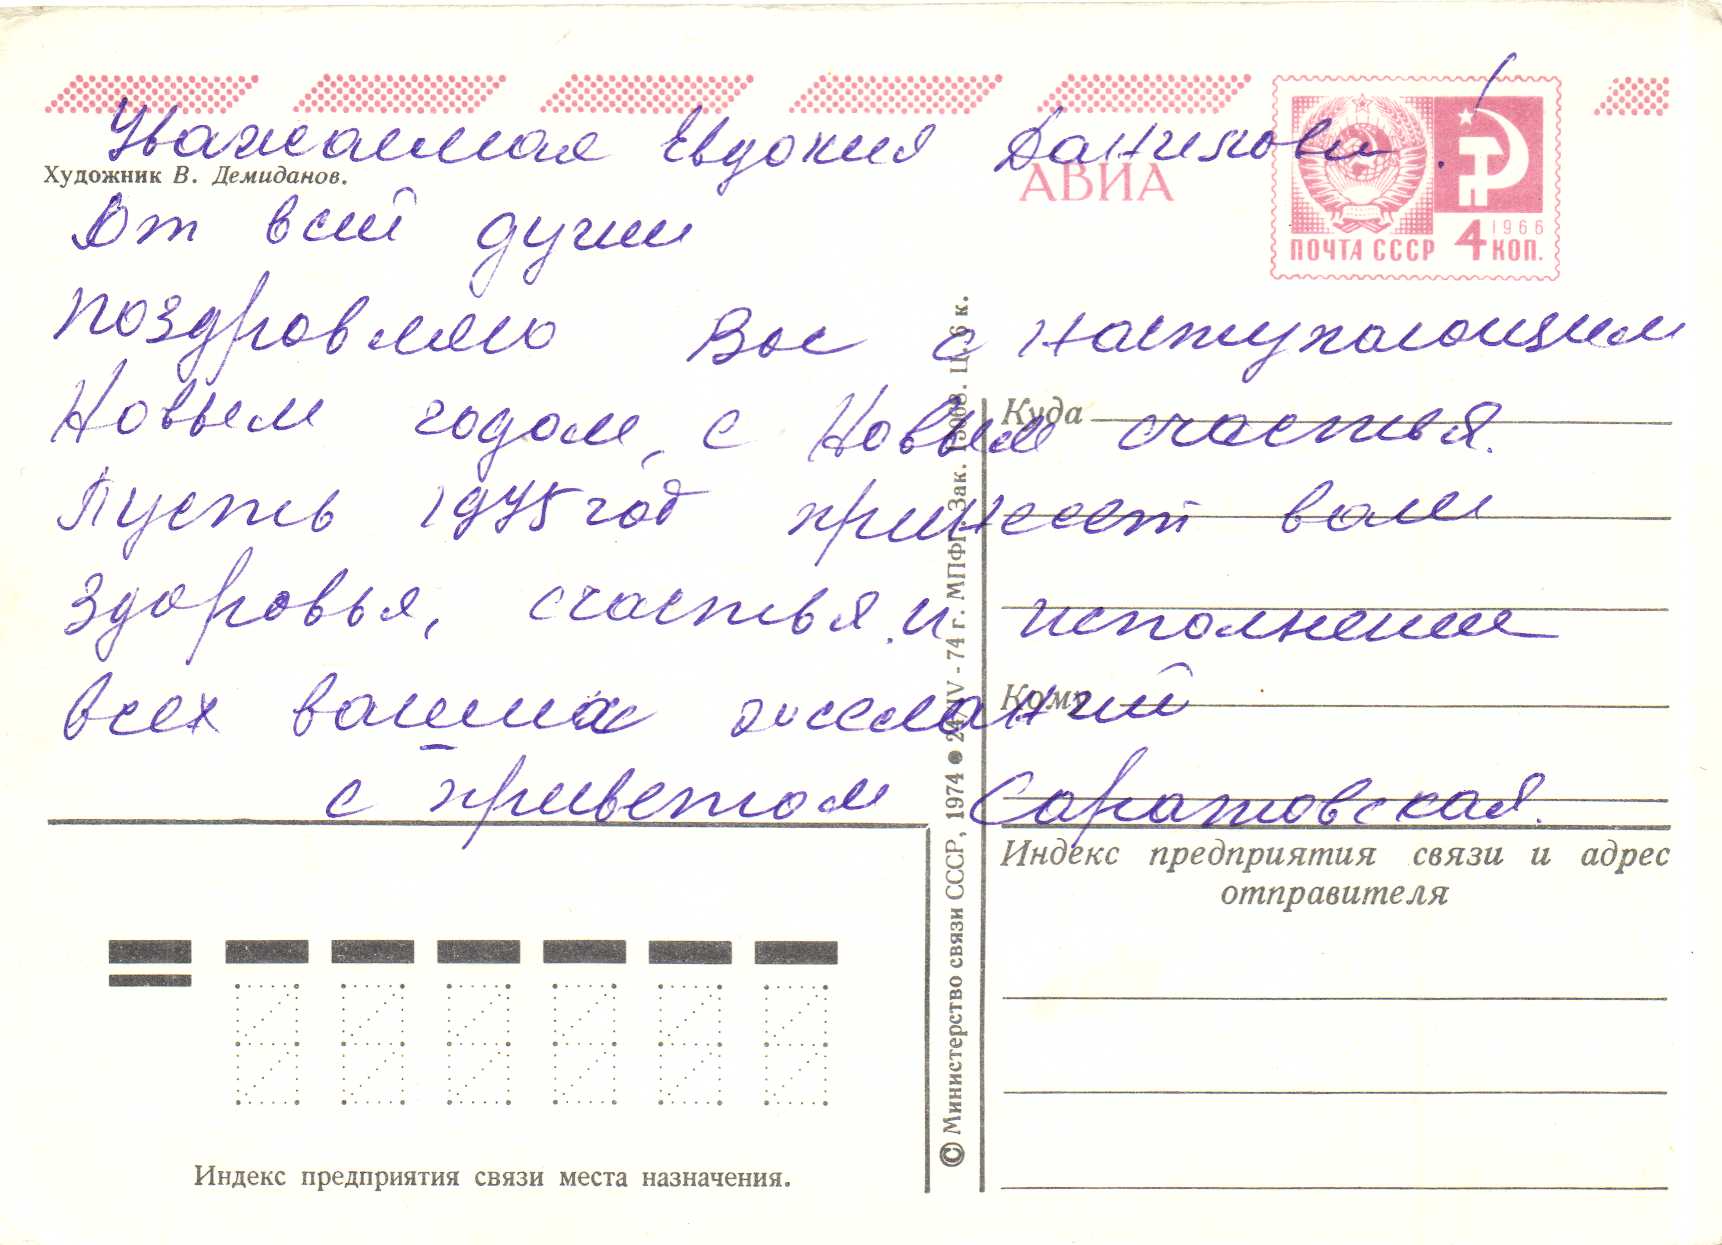 Уважаемая Евдокия Даниловн!
Художник В. Демиданов.
АВИА
ПОЧТА СССР 4 КОП.
1966
От всей души
поздровляю Вас с наступающим
Новым годом, с Новым счастья.
Пусть 1975 год принесет вам
здоровья, счастья и исполнение
всех ваших желаний
с приветом Саратовская.
Куда
Кому
Индекс предприятия связи и адрес
отправителя
© Министерство связи СССР, 1974 ● 24/IV - 74 г. МПФГ. Зак. Ц. 6 к.
Индекс предприятия связи места назначения.